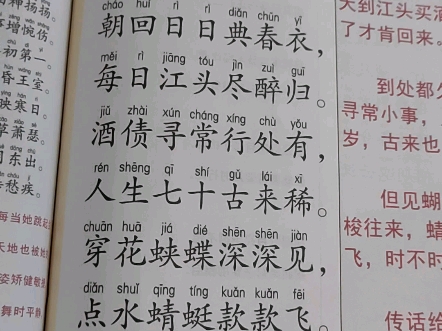 cháo huí rì rì diǎn chūn yī
朝回日日典春衣，
měi rì jiāng tóu jìn zuì guī
每日江头尽醉归。
jiǔ zhài xún cháng xíng chù yǒu
酒债寻常行处有，
rén shēng qī shí gǔ lái xī
人生七十古来稀。
chuān huā jiá dié shēn shēn jiàn
穿花蛱蝶深深见，
diǎn shuǐ qīng tíng kuǎn kuǎn fēi
点水蜻蜓款款飞。
神扬扬。
事增惋伤。
初第一。
昏王室。
映寒日。
草萧瑟。
东出。
愁疾。
每当她跳起
天地也被她
姿矫健敏捷
舞时平静
天到江头买酒
了才肯回来。
到处都欠
寻常小事，
岁，古来也
但见蝴
梭往来，蜻
飞，时不时
传话给